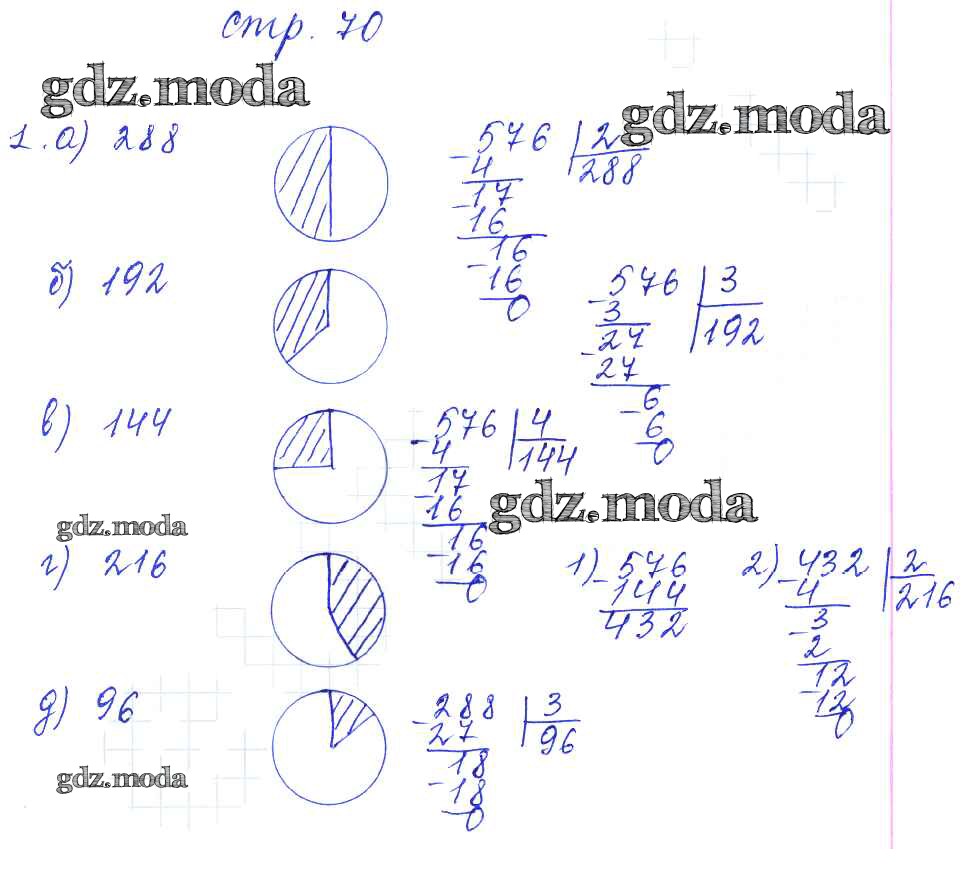 стр. 70
gdz.moda
gdz.moda
1. а) 288
576 | 2
- 4 288
17
- 16
16
- 16
0
б) 192
576 | 3
- 3 192
27
- 27
6
- 6
0
в) 144
576 | 4
- 4 144
17
- 16
16
- 16
0
gdz.moda
gdz.moda
г) 216
1) 576
- 144
432
2) 432 | 2
- 4 216
3
- 2
12
- 12
0
д) 96
288 | 3
- 27 96
18
- 18
0
gdz.moda